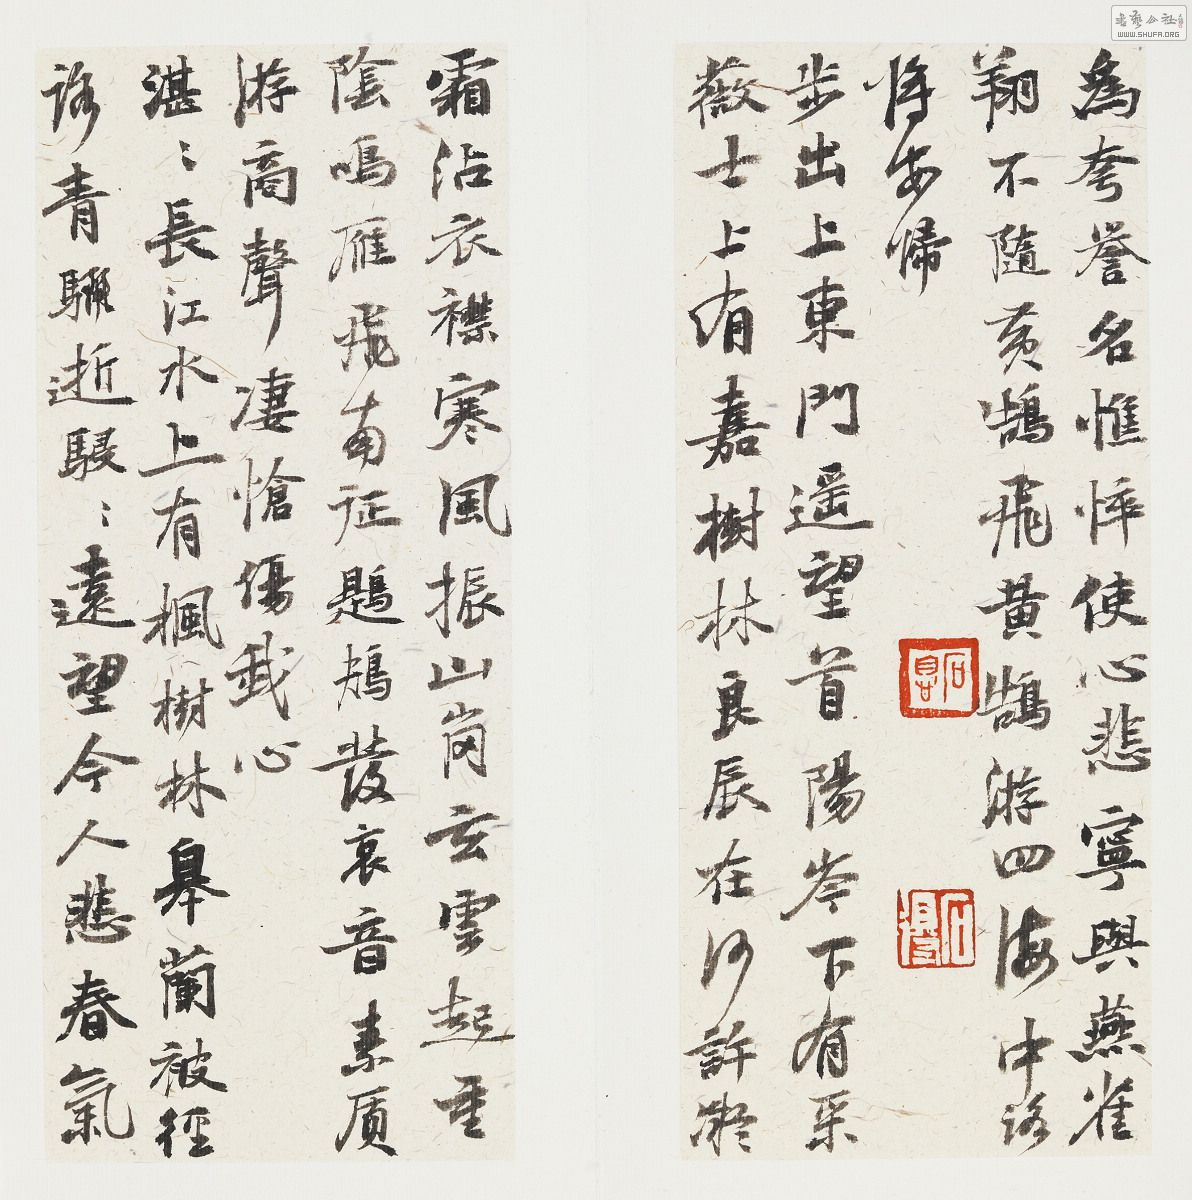 書藝公社
WWW.SHUFA.ORG
為夸譽名憔悴使心悲寧與燕雀
翔不隨黃鵠飛黃鵠游四海中路
將安歸
步出上東門遥望首陽岑下有采
薇士上有嘉樹林良辰在何許凝
霜沾衣襟寒風振山崗玄雲起重
陰鳴雁飛南征鶗鴂發哀音素质
游商聲凄愴傷我心
湛〻長江水上有楓樹林皋蘭被徑
路青驪逝駸〻遠望令人悲春氣